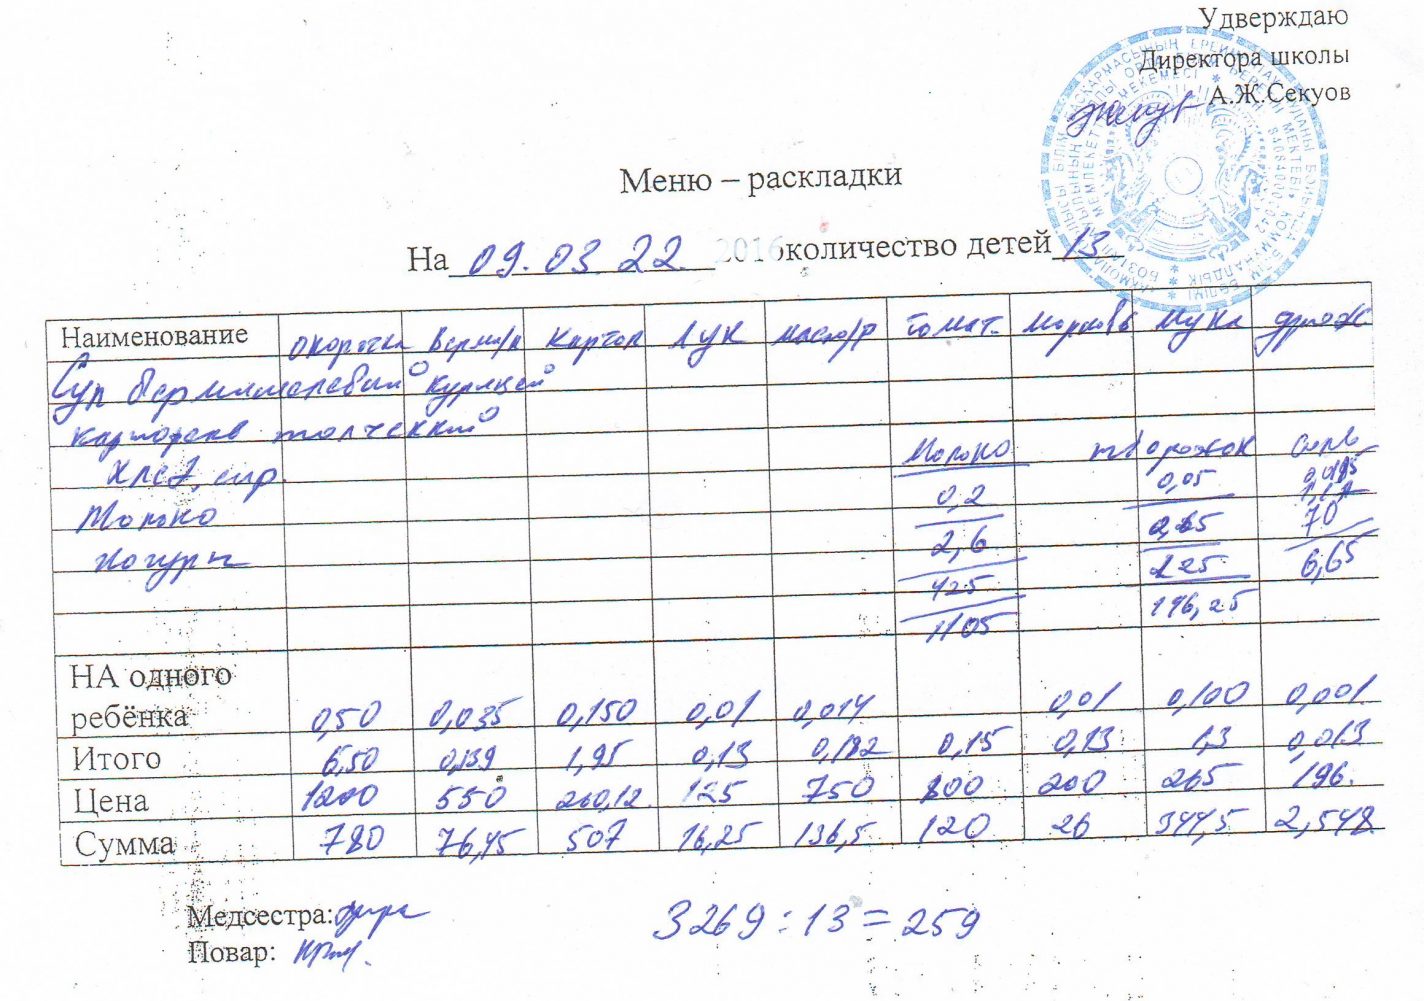 Удверждаю
Директора школы
А.Ж.Секуов
Меню – раскладки
На 09.03.22 2016 количество детей 13
Наименование окорочка Верми/л Картоп Лук масло/р томат. морковь мука дрож
Суп вермишелевый курицей
картофель толченный
Молоко творожок сыр
Хлеб, сыр. 0,05
Молоко 0,2 70
Йогурт 2,6 6,65
425 225
1105 196,25
НА одного
ребёнка 0,50 0,035 0,150 0,01 0,014 0,01 0,100 0,001
Итого 6,50 0,139 1,95 0,13 0,182 0,15 0,13 1,3 0,013
Цена 1200 550 260,12 125 750 800 200 265 196.
Сумма 780 76,45 507 16,25 136,5 120 26 344,5 2,548
Медсестра:
Повар:
3269 : 13 = 259